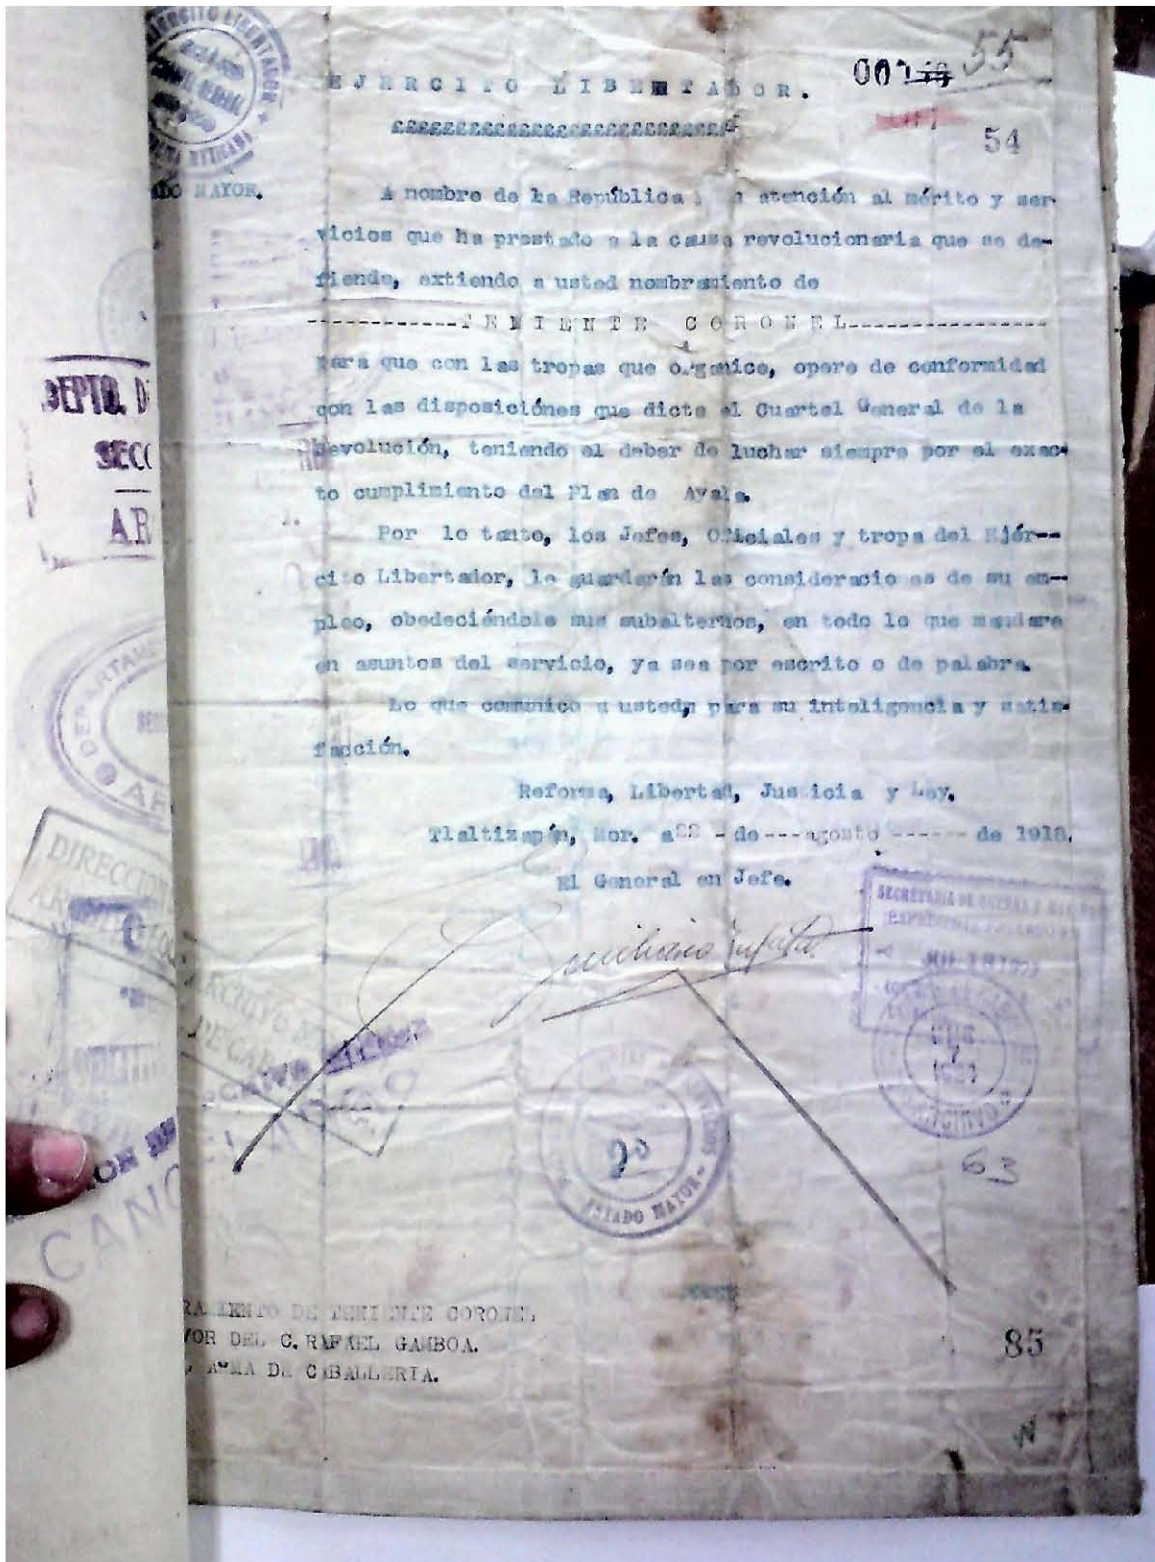 EJERCITO LIBERTADOR.
55
54
ADO MAYOR.
A nombre de la República atención al mérito y ser
vicios que ha prestado a la causa revolucionaria que se de-
fiende, extiendo a usted nombramiento de
-----------TENIENTE CORONEL----------------
para que con las tropas que organice, opere de conformidad
con las disposiciónes que dicte el Cuartel General de la
Revolución, teniendo el deber de luchar siempre por el exac-
to cumplimiento del Plan de Ayala.
Por lo tanto, los Jefes, Oficiales y tropa del Ejér--
cito Libertador, le guardarán las consideraciones de su em--
pleo, obedeciéndole sus subalternos, en todo lo que mandare
en asuntos del servicio, ya sea por escrito o de palabra.
Lo que comunico a usted, para su inteligencia y satis-
facción.
Reforma, Libertad, Justicia y Ley.
Tlaltizapán, Mor. a 22 - de --- agosto ------ de 1918.
El General en Jefe.
Emiliano Zapata
DEPTO. D
SECC
AR
DEPARTAME
DIRECCION
ARCHIVO
DE
CANC
SECRETARIA DE GUERRA Y
ARCHIVO
ESTADO MAYOR
63
RAMIENTO DE TENIENTE CORONEL
VOR DEL C. RAFAEL GAMBOA.
ARMA DE CABALLERIA.
85